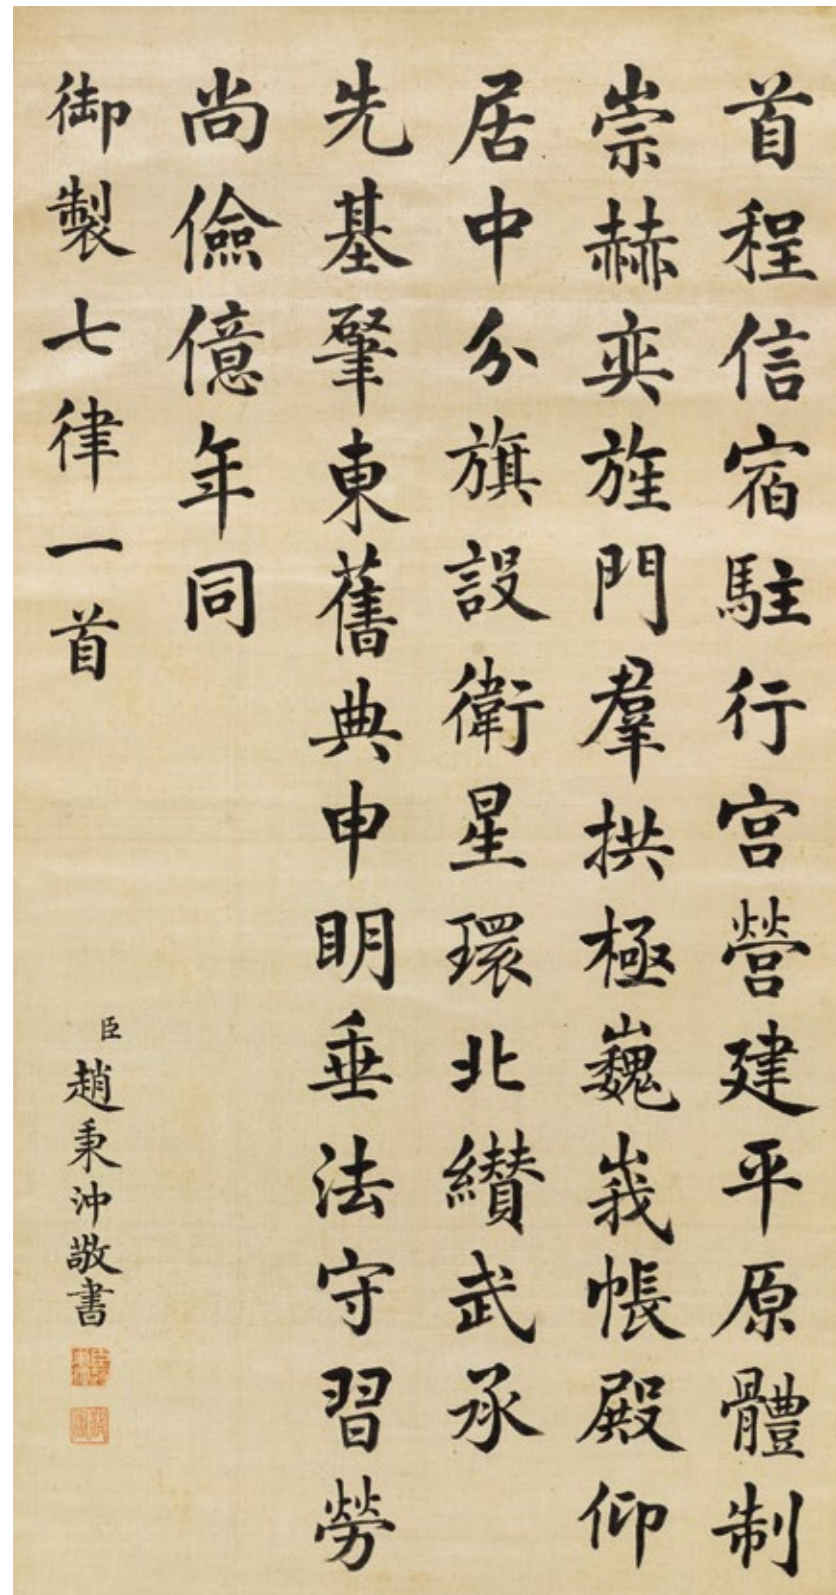 首程信宿駐行宮營建平原體制
崇赫奕旌門羣拱極巍峩帳殿仰
居中分旗設衛星環北纘武承
先基肇東舊典申明垂法守習勞
尚儉億年同
御製七律一首
臣趙秉沖敬書